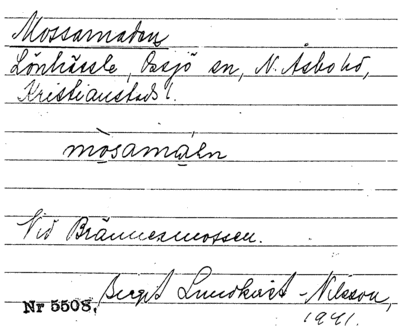 Mossamaden
Lönhässle, Ossjö sn, N. Åsbo hd,
Kristianstads l.
mòsamáen
Vid Brännesmossen.
Nr 5508. Bergit Lundkvist-Nilsson,
1941.